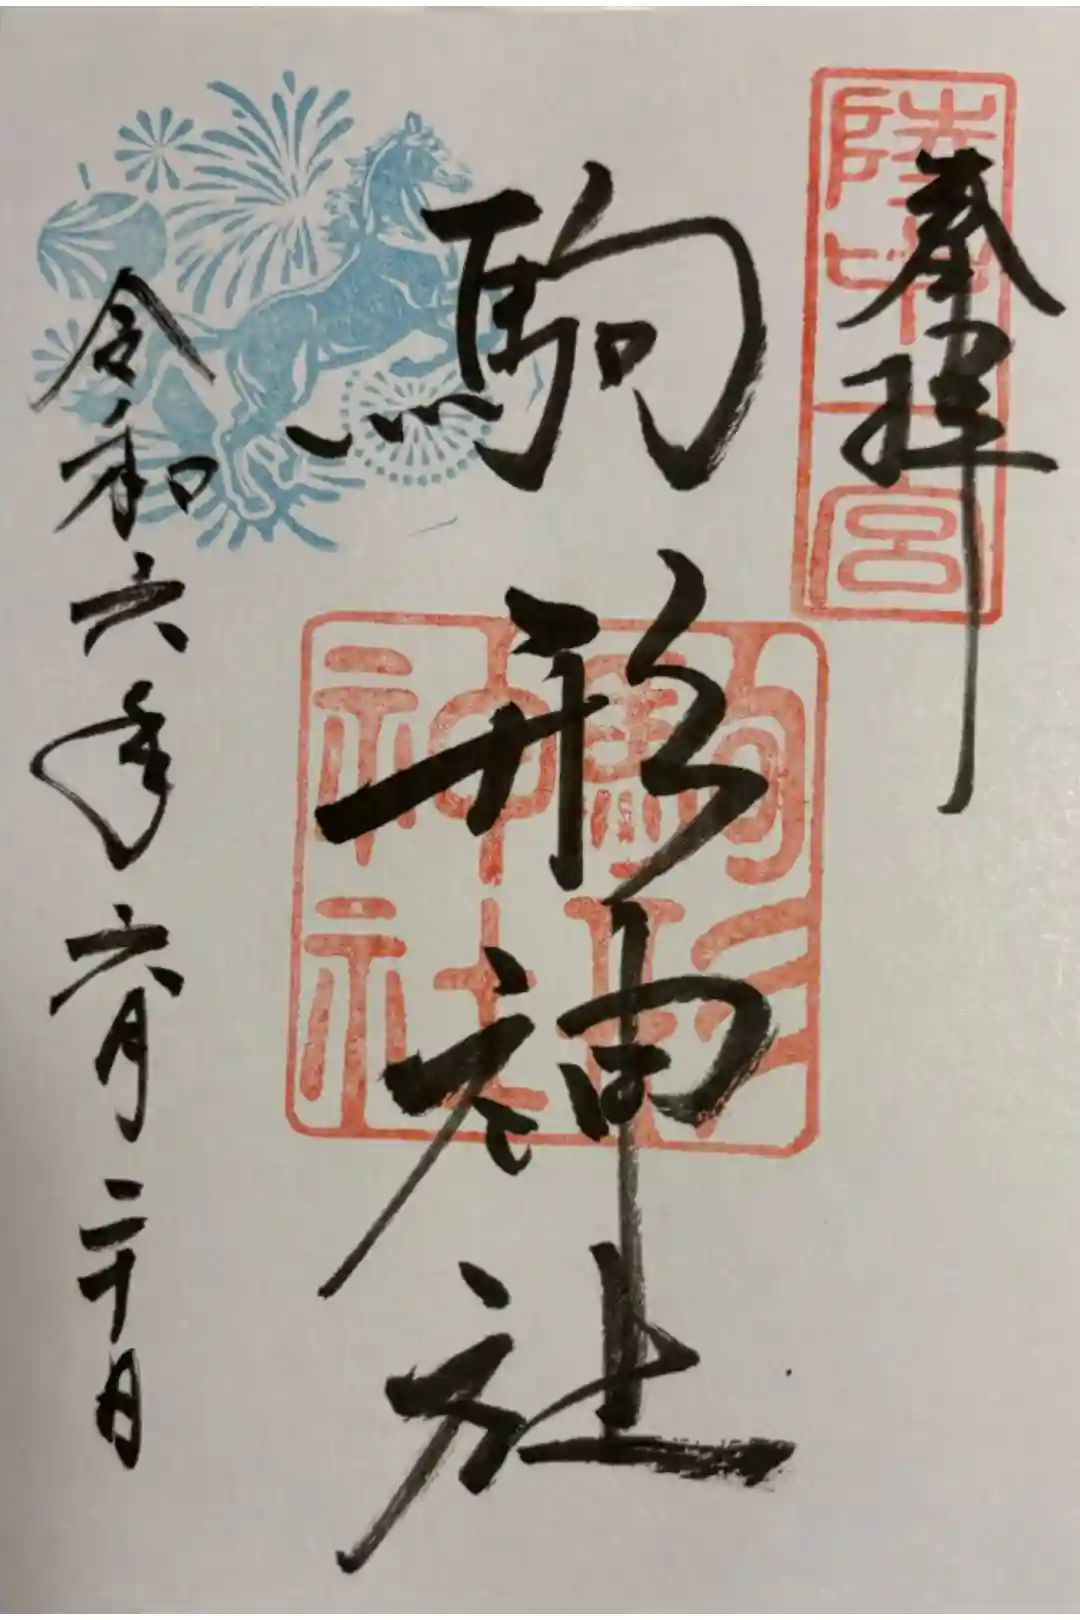 奉拝
陸中一宮
駒形神社
駒形
神社
令和六年六月二十日